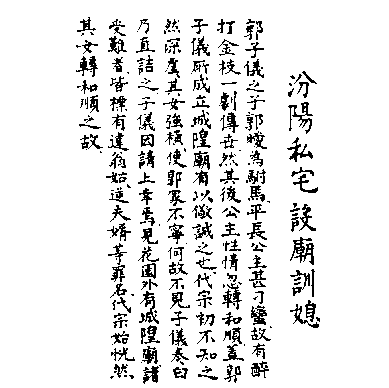 汾陽私宅設廟訓媳
郭子儀之子郭曖為駙馬平長公主甚刁蠻故有醉
打金枝一劇傳世然其後公主性情忽轉和順蓋郭
子儀所成立城隍廟有以儆誡之也代宗初不知之
然深虞其女強橫使郭家不寧何故不見子儀奏曰
乃直詰之子儀因請上幸焉見花園外有城隍廟諸
受難者皆標有違翁姑逆夫婿等罪名代宗始恍然
其女轉和順之故